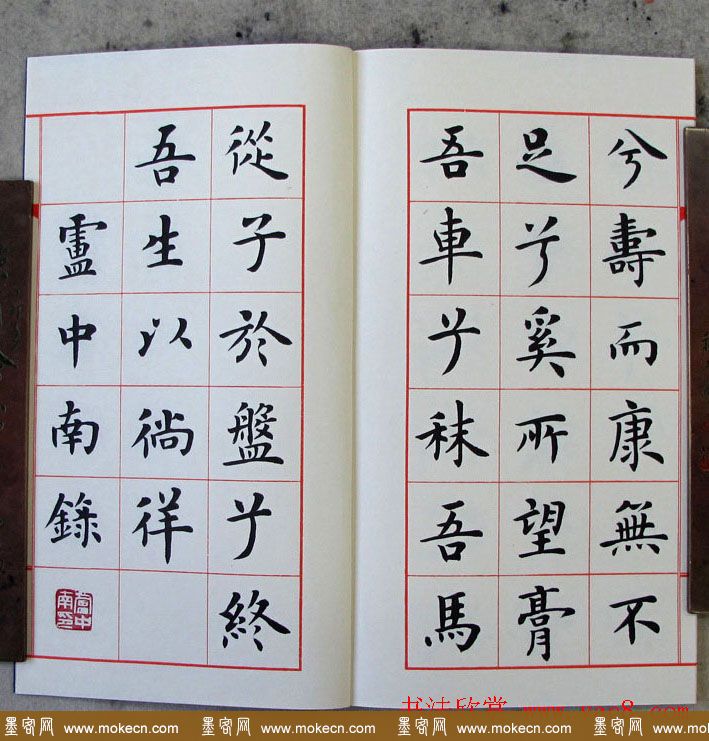 兮壽而康無不
足兮奚所望膏
吾車兮秣吾馬
從子於盤兮終
吾生以徜徉
盧中南錄
盧中南印
书法欣赏 www.yac8.com
墨客网 www.mokecn.com 墨客网 www.mokecn.com 墨客网 www.mokecn.com 墨客网 www.mokecn.com